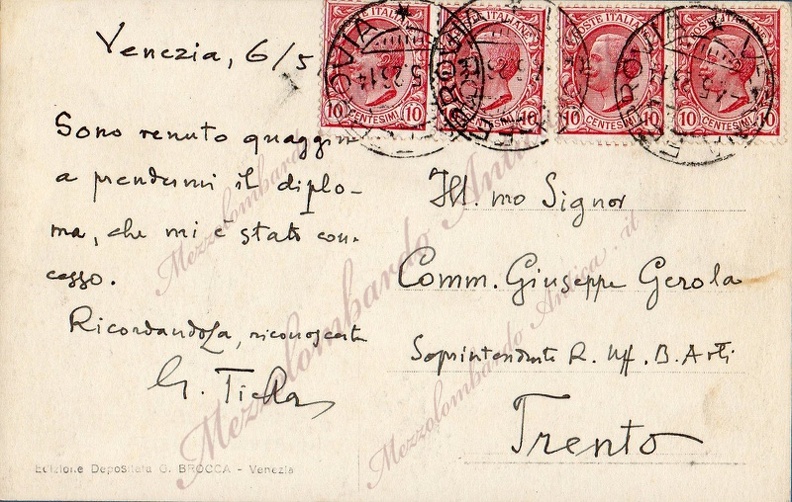 Venezia, 6/5
Sono venuto quaggiù
a prendermi il diplo-
ma, che mi è stato con-
cesso.
Ricordandola, riconoscente
G. Tiella
Edizione Depositata G. BROCCA - Venezia
POSTE ITALIANE
10 CENTESIMI 10
10 CENTESIMI 10
10 CENTESIMI 10
10 CENTESIMI 10
Ill.mo Signor
Comm. Giuseppe Gerola
Soprintendente R. Uff. B. Arti
Trento
Mezzolombardo Antica.it
Mezzolombardo Antica.it